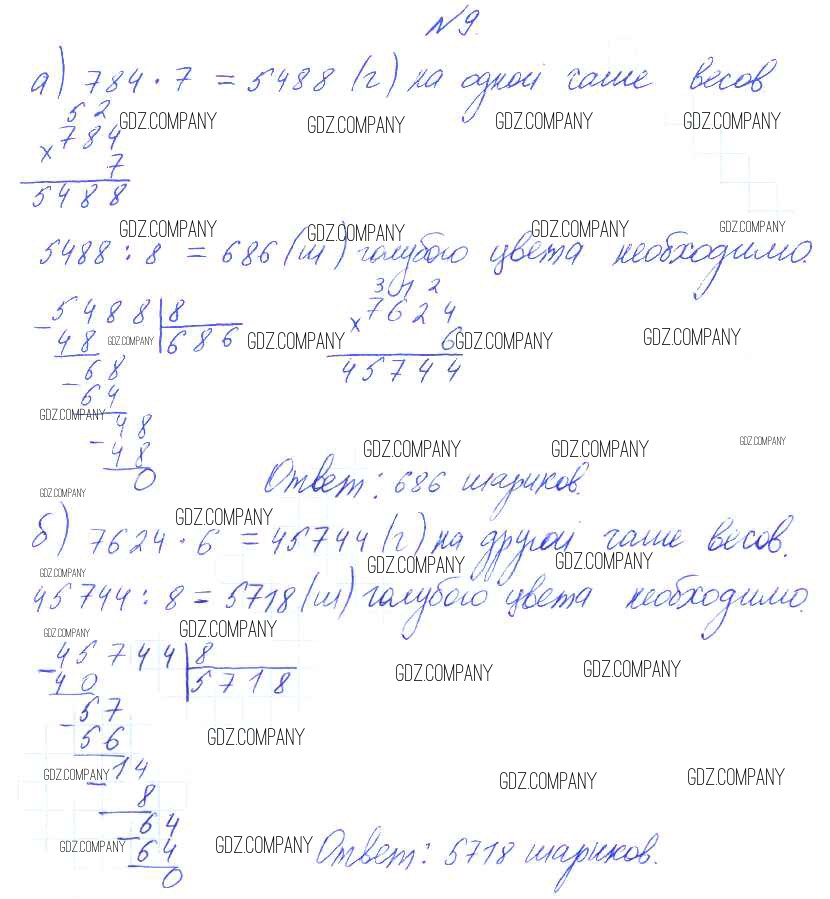 №9.
а) 784 · 7 = 5488 (г) на одной чаше весов
52
GDZ.COMPANY GDZ.COMPANY GDZ.COMPANY GDZ.COMPANY
× 784
7
5488
GDZ.COMPANY GDZ.COMPANY GDZ.COMPANY GDZ.COMPANY
5488 : 8 = 686 (ш) голубого цвета необходимо.
3 1 2
– 5488 | 8 × 7624
48 GDZ.COMPANY 686 GDZ.COMPANY 6 GDZ.COMPANY GDZ.COMPANY
– 68 45744
64
GDZ.COMPANY
– 48
48 GDZ.COMPANY GDZ.COMPANY GDZ.COMPANY
0 Ответ: 686 шариков.
GDZ.COMPANY
GDZ.COMPANY
б) 7624 · 6 = 45744 (г) на другой чаше весов.
GDZ.COMPANY GDZ.COMPANY GDZ.COMPANY
45744 : 8 = 5718 (ш) голубого цвета необходимо.
GDZ.COMPANY GDZ.COMPANY
– 45744 | 8
40 5718 GDZ.COMPANY GDZ.COMPANY
– 57
56 GDZ.COMPANY
GDZ.COMPANY – 14 GDZ.COMPANY GDZ.COMPANY
8
– 64
GDZ.COMPANY 64 GDZ.COMPANY Ответ: 5718 шариков.
0